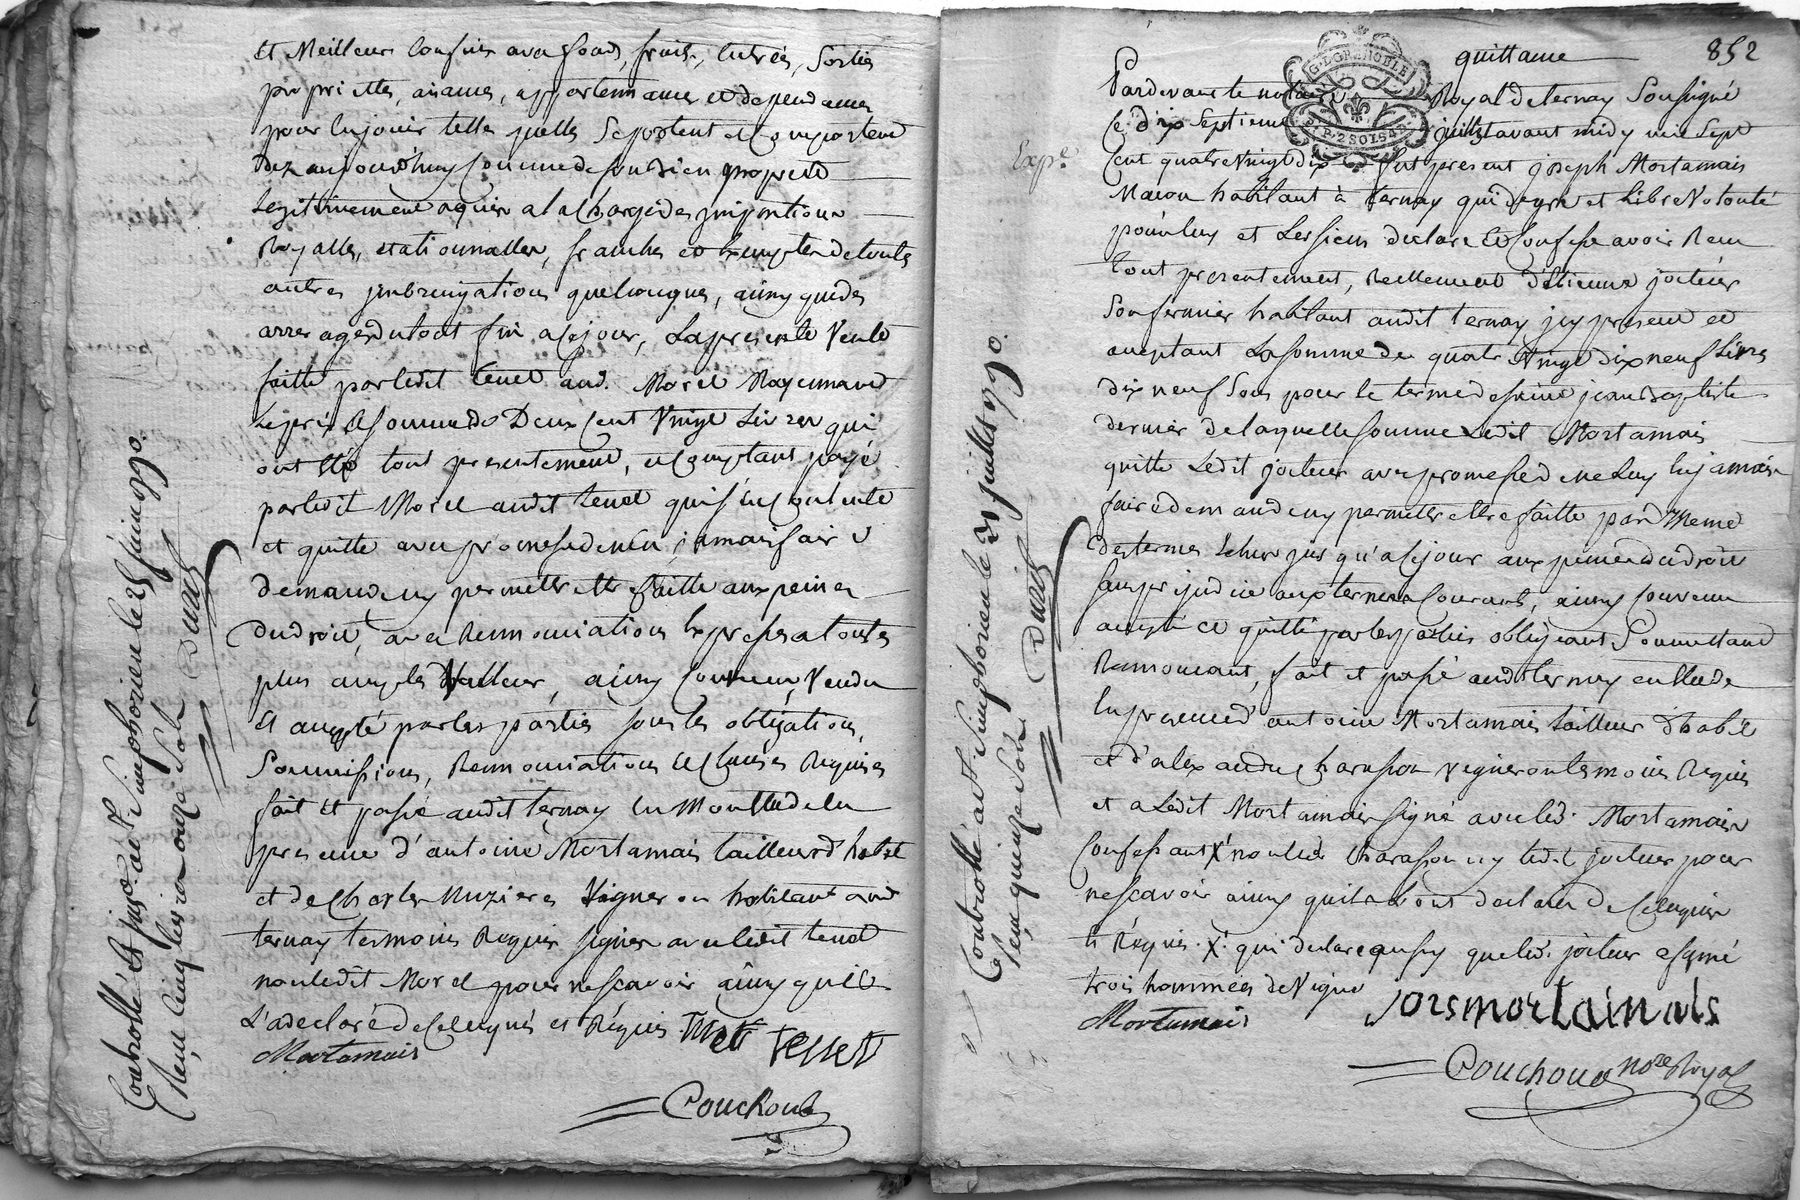 Et Meilleurs Confins avec fonds, fruits, entrées, sorties
proprietés, aisances, appartenances et dependances
pour en jouir telle quelle Se portent et Comportent
dez aujourd'huy Comme de son bien propre et
Legitimement aquis a la Charge des impositions
Royalles, et nationnalles, franches et Exemptes de toutes
autres quelconques, ainsy que des
arrerages du tout fin a Ce jour, La presente Vente
faitte par ledit tenet aud. Morel Moyennant
Le prix et somme de Deux Cent Vingt Livres qui
ont été tout presentement, et Comptant payé
par ledit Morel audit tenet qui s'en Contente
et quitte avec promesse de n'en jamais faire
demande ny permettre être faitte aux peines
du droit, avec Rennonciations Expresses a toutes
plus amples Valleur, ainsy Convenu, Vendu
Et accepté par les parties sous les obligations,
Soumissions, Rennonciations et Clauses Requises
fait et passé audit ternay En Mon Etude En
presence d'antoine Mortamais tailleur d'habit
et de Charles Muzieres Vigneron habitant aud.
ternay temoins Requis signés avec ledit tenet
non ledit Morel pour ne scavoir ainsy qu'il
L'a declaré de Ce Enquis et Requis.
Mortamais
Couchoud
Controllé à St Simphorien le 25 juin 1790.
Reçu Cinq livres onze Sols
quittance
852
G. D. GRENOBLE
2 SOLS 4 D
Expé.
Pardevant le notaire Royal de ternay Soussigné
Ce dix Septieme juillet avant midy mil Sept
Cent quatre Vingt dix fut present joseph Mortamais
Macon habitant à ternay qui de gré et Libre Volonté
pour luy et Les siens declare et Confesse avoir Reçu
tout presentement, Reellement d'Etienne joiteur
Son fermier habitant audit ternay icy present et
acceptant La somme de quatre Vingt dix neuf Livres
dix neuf Sous pour le terme de saint jean Baptiste
dernier de laquelle somme Ledit Mortamais
quitte Ledit joiteur avec promesse de ne Luy En jamais
faire demande ny permettre être faitte par Meme
des termes Echus jusqu'a Ce jour aux peines du droit
sans prejudice aux termes Courants, ainsy Convenu
accepté et quitté par les parties obligeant Soumettant
Rennoncant, fait et passé audit ternay en Etude
En presence d'antoine Mortamais tailleur d'habit
et d'alexandre Charasson Vigneron temoins Requis
et a Ledit Mortamais signé avec led. Mortamais
Confessant X non led. Charasson ny ledit joiteur pour
ne scavoir ainsy qu'ils L'ont declaré de Ce Enquis
et Requis. X qui declare aussy que led. joiteur
trois hommées de Vigne
Mortamais
Couchoud nore Royal
Controllé à St Simphorien le juillet 1790.
Reçu quinze Sols